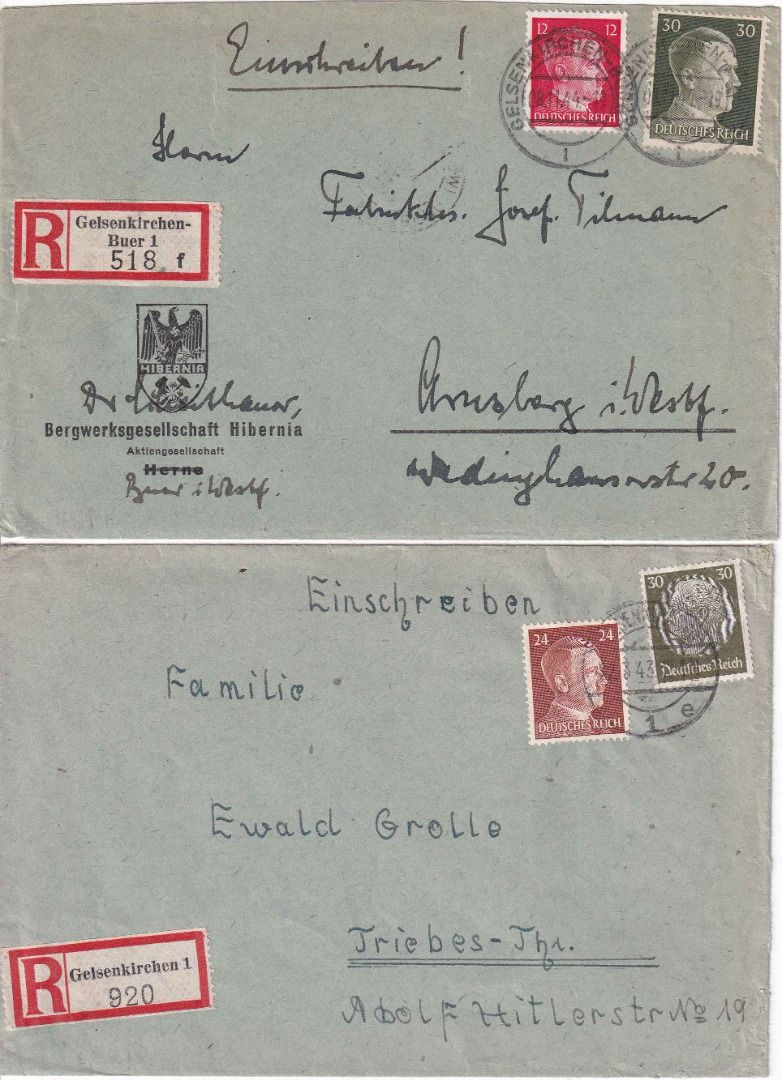 Einschreiben!
12 12
DEUTSCHES REICH
30 30
DEUTSCHES REICH
GELSENKIRCHEN
1
Herrn
R
Gelsenkirchen-
Buer 1
518 f
Fabrikbes. Josef Tilmann
HIBERNIA
Dr
Bergwerksgesellschaft Hibernia
Aktiengesellschaft
Herne
Buer i. Westf.
Arnsberg i. Westf.
Wedinghauserstr 20.
Einschreiben
24 24
DEUTSCHES REICH
30 30
Deutsches Reich
43
1 e
Familie
Ewald Grolle
R
Gelsenkirchen 1
920
Triebes-Thr.
Adolf Hitlerstr No 19